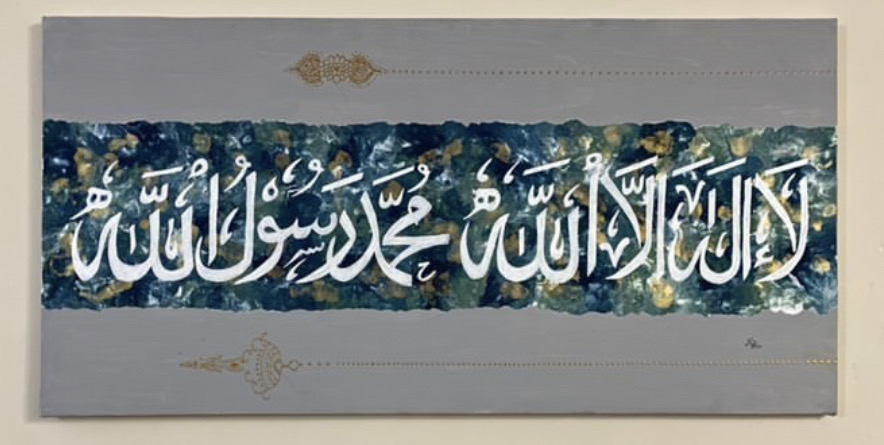 لَا إِلَٰهَ إِلَّا ٱللَّٰهُ مُحَمَّدٌ رَسُوْلُ ٱللَّٰهِ